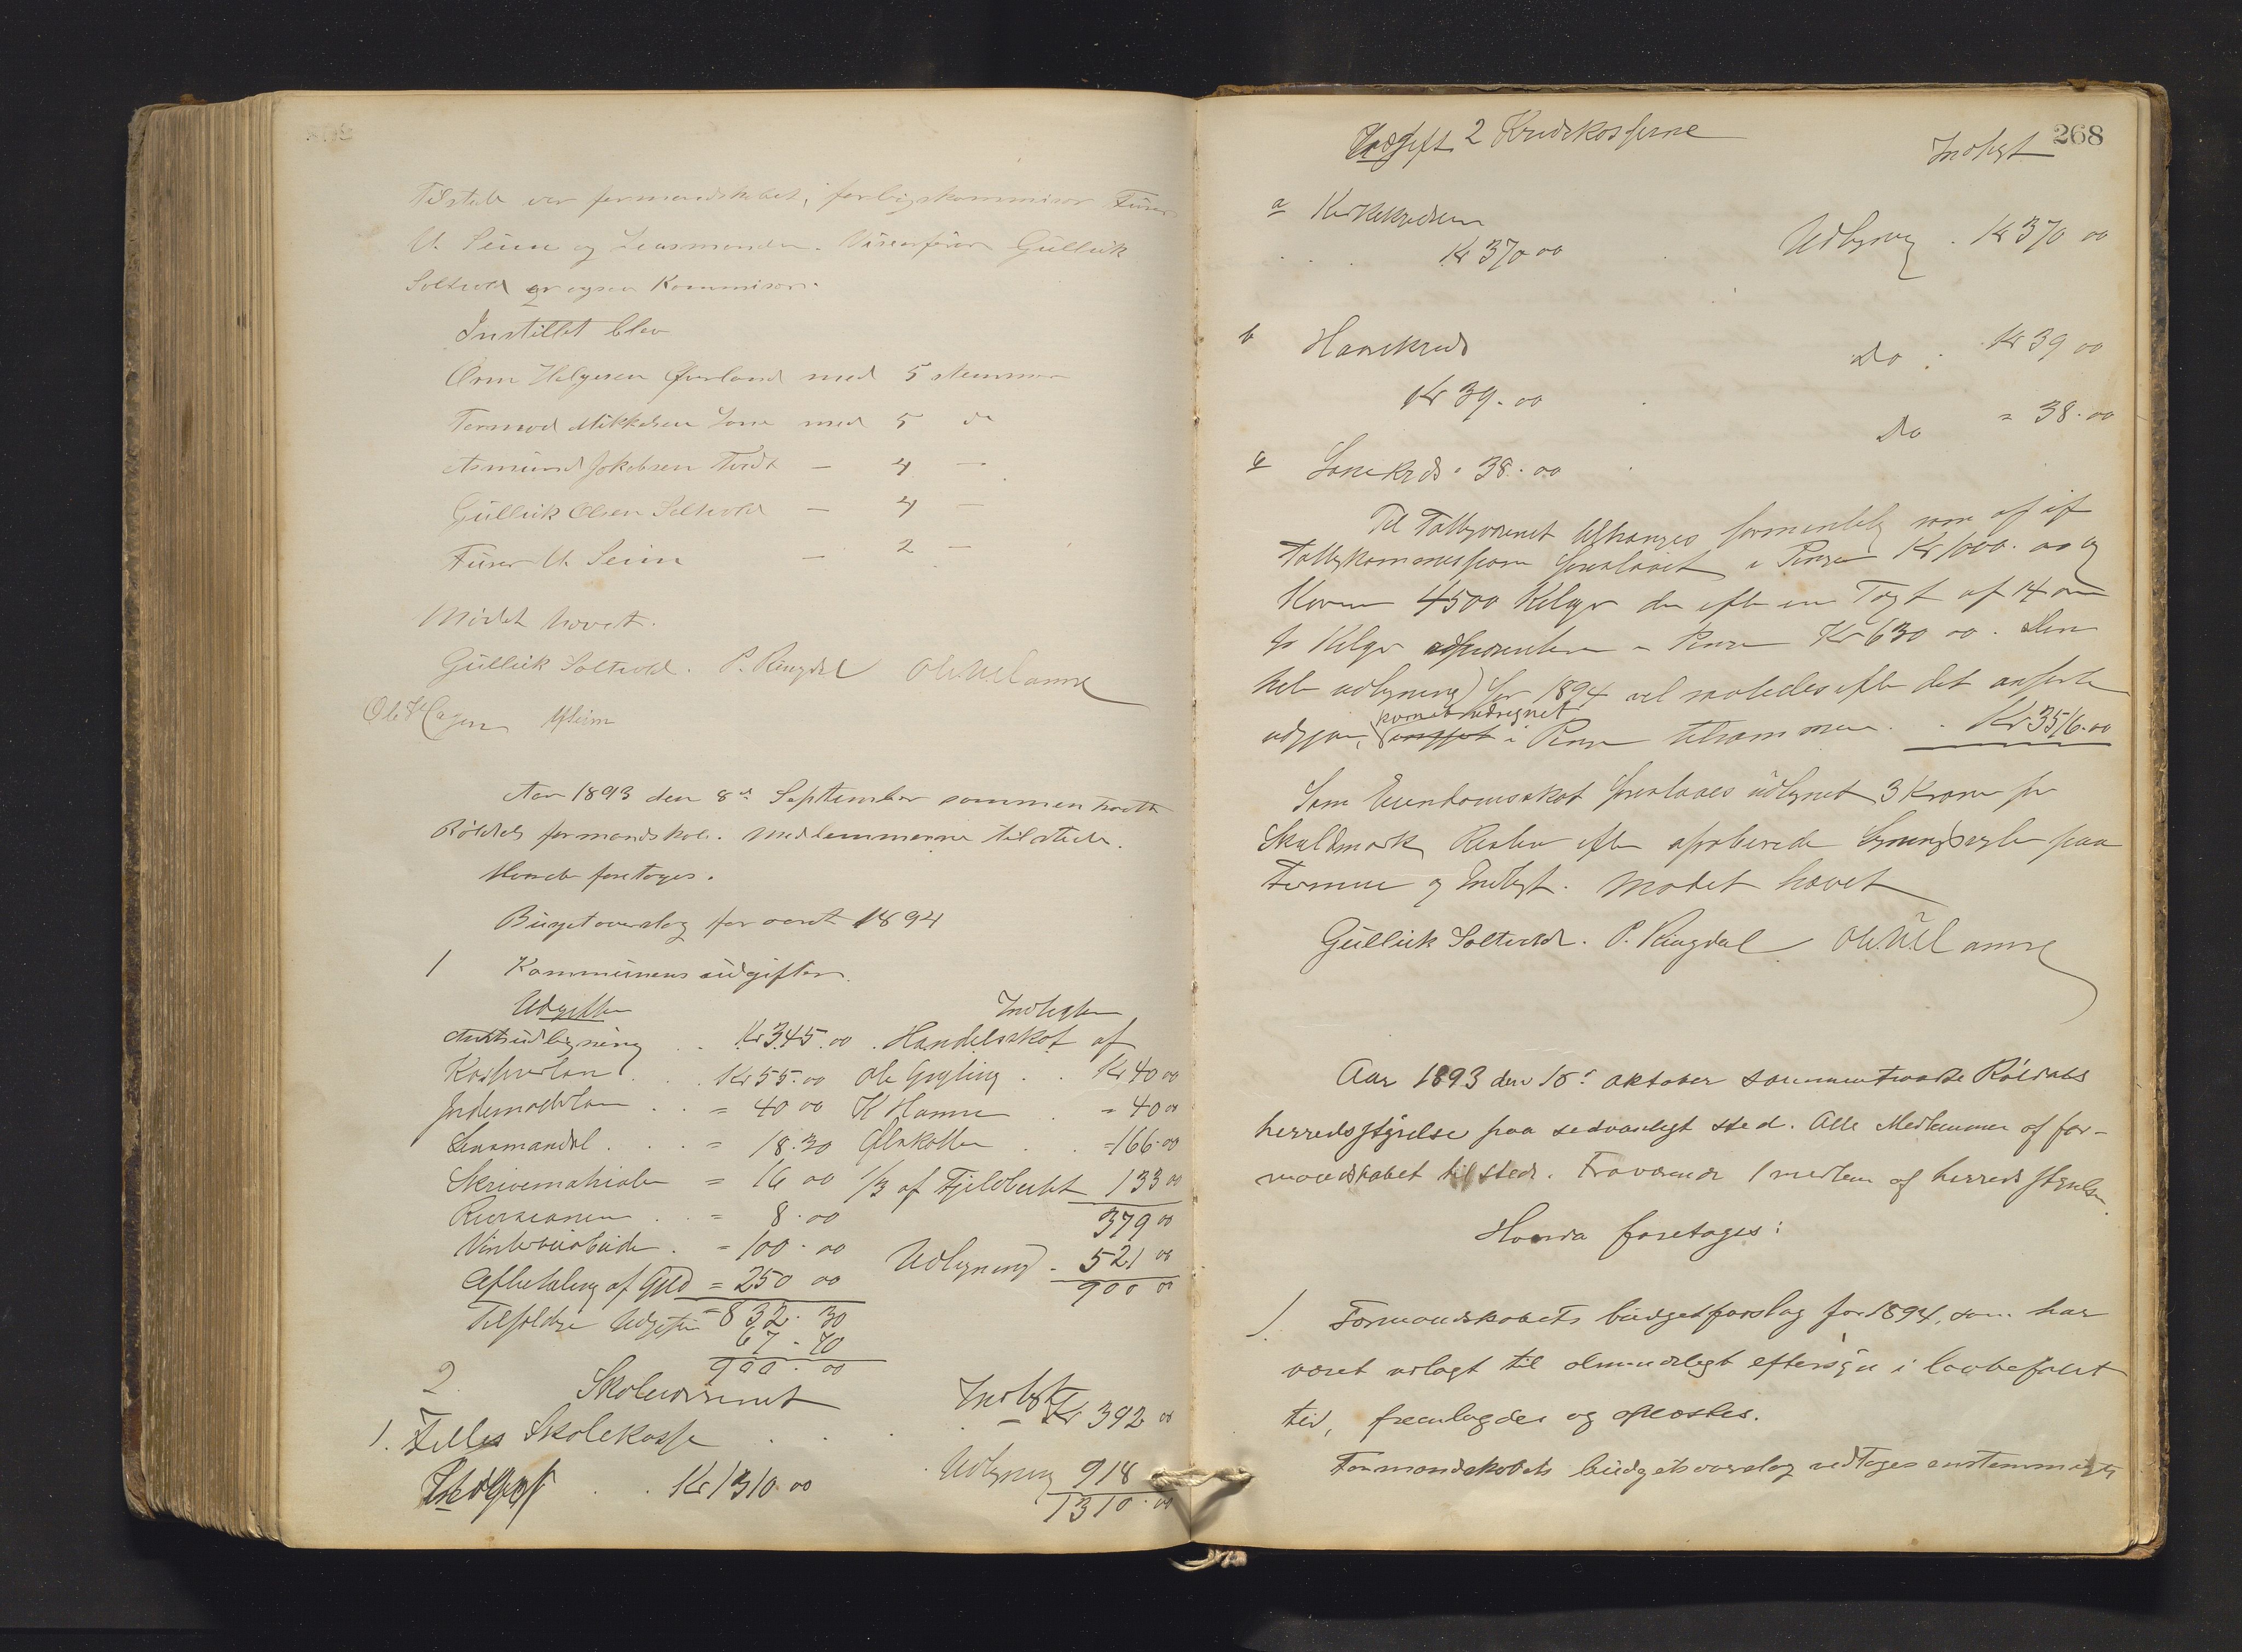 Tilstede var formandskabet, forligskommisær Fürer
U. Seim og Lensmanden. Viseordfører Gullik
Soltvold er ogsaa Kommisær.
Instillet blev
Orm Helgesen Øverland med 5 stemmer
Tormod Mikkelsen Lone med 5 do
Asmund Jakobsen med 4 —
Gullik Olsen Soltvold — 4 —
U. Seim — 2 —
Mødet hævet.
Gullik Soltvold. P. Ringdal Ole N. Hamre
Ole H Seim
Aar 1893 den 8de September sammentraadte
Røldals formandskab. Medlemmerne tilstede.
Hvorda foretoges.
Budgetoverslag for aaret 1894
1 Kommunens udgifter.
Udgifter Indtægter
Amtsudligning . . Kr 345.00 . Handelsskat af
Kasserløn . . . Kr 55.00 Ole Gryting . . Kr 40 00
Jordemoderløn . . = 40 00 K Hamre . = 40 00
Lensmandsl. . . . = 18.30 . . =166.00
Skrivematrialer = 16 00 1/3 af Fjeldbeitet 133 00
Revisionen . . = 8.00 379 00
. = 100.00 Udligning - 521 00
Afbetaling af Gjeld = 250 00 900 00
Tilfeldige Udgifter = 832.30
67.70
900.00
2. Skolevæsenet Indtægt
1. Fælles Skolekasse . . . Kr 392 00
Udgift . . Kr 1310 00 Udligning 918
1310.00
268
Udgift 2 Kredskasserne Indtegt
a Kirkekredsen
Kr 370 00 Udligning . Kr 370 00
b Harekreds Do . Kr 39 00
Kr 39.00
Do = 38.00
c Lonekreds . 38.00
Til Fattigvæsenet udfranges formentlig som af
Fattigkommissionen foreslaaet i Penge Kr 1000.00 og
Korn 4500 Kilogr der efter en Taxt af 14 øre
pr Kilogr i Penge Kr 630 00. Den
hele udligning for 1894 vil saaledes efter det anførte
udgjøre, kornet udregnet i Penge tilsammen . . Kr 3516.00
Som Eiendomsskat foreslaaes udlignet 3 Kroner pr
Skuldmark Resten efter aproberede Ligningsregler paa
Formue og Indtegt. Mødet hævet
Gullik Soltvold. P. Ringdal Ole N. Hamre
Aar 1893 den 18de oktober sammentraadte Røldals
herredsstyrelse paa sedvanligt sted. Alle Medlemmer af for-
mandskabet tilstede. Fraværende 1 medlem af herredsstyrelsen.
Hvorda foretoges:
1. Formandskabets budgetforslag for 1894, som har
været udlagt til almindeligt eftersyn i lovbefalet
tid, fremlagdes og oplæstes.
Formandskabets budgetsoverslag vedtoges enstemmigt